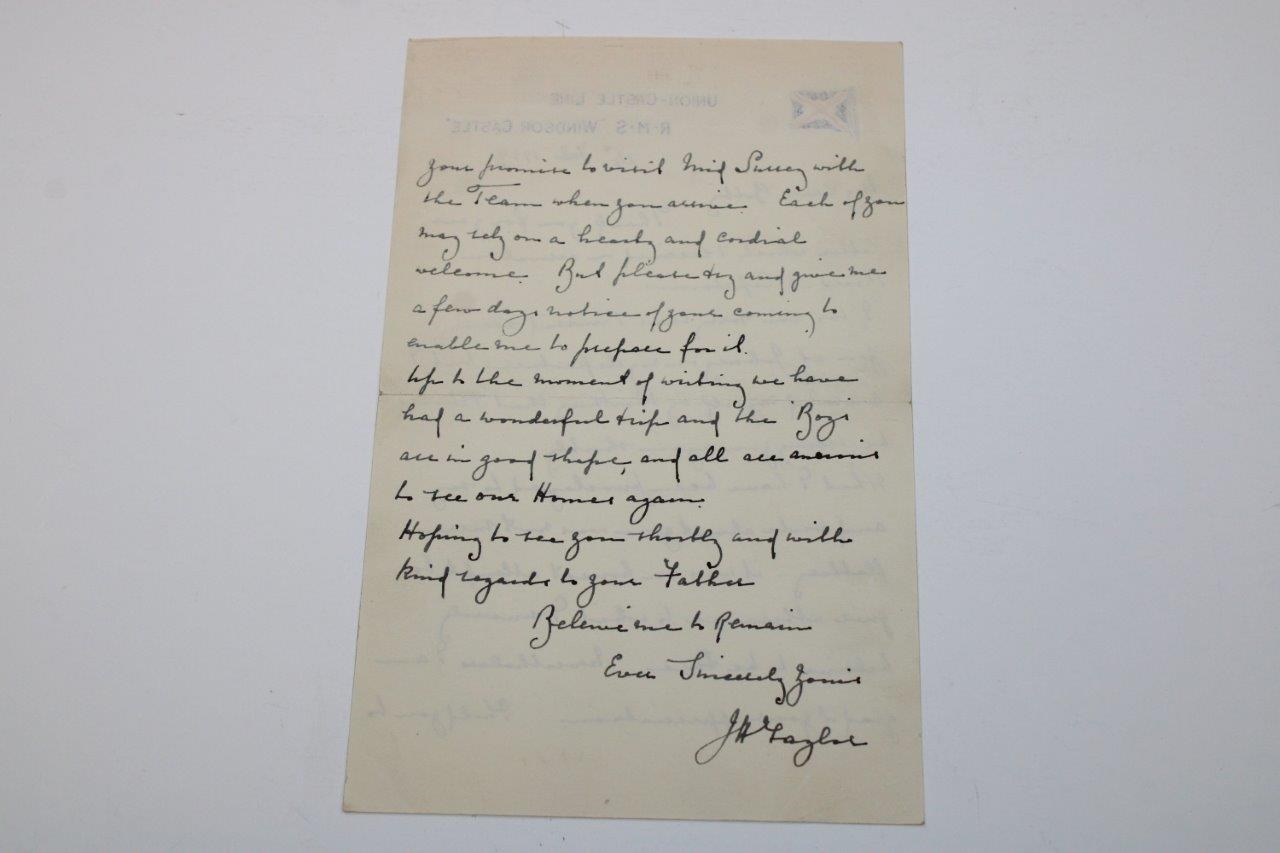 UNION-CASTLE LINE
R·M·S "WINDSOR CASTLE"
your promise to visit Mid Surrey with
the Team when you arrive. Each of you
may rely on a hearty and cordial
welcome. But please try and give me
a few days notice of your coming to
enable me to prepare for it.
Up to the moment of writing we have
had a wonderful trip and the Boys
are in good shape, and all are anxious
to see our Homes again.
Hoping to see you shortly and with
kind regards to your Father
Believe me to Remain
Ever Sincerely Yours
JH Taylor